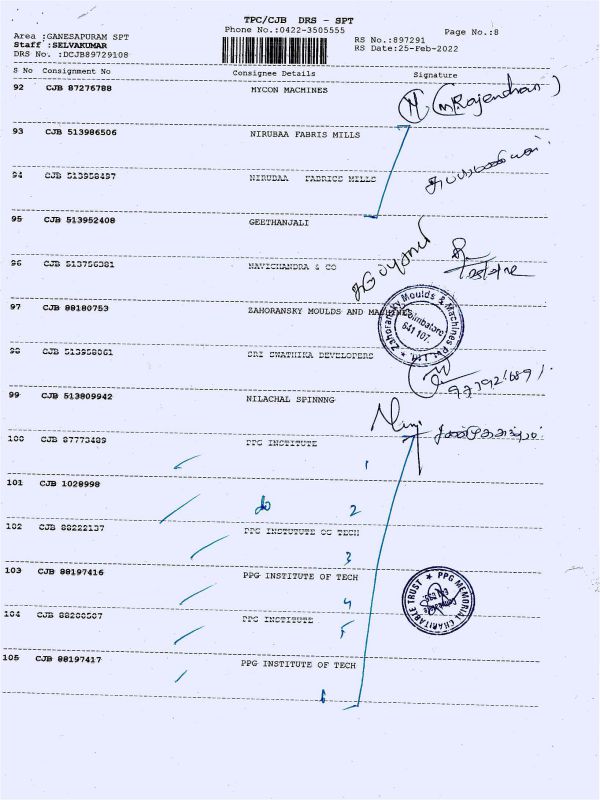 TPC/CJB DRS - SPT
Phone No.:0422-3505555
Page No.:8
Area :GANESAPURAM SPT
Staff :SELVAKUMAR
DRS No. :DCJB89729108
RS No.:897291
RS Date:25-Feb-2022
S No Consignment No Consignee Details Signature
92 CJB 87276788 MYCON MACHINES
(M.Rajendran)
93 CJB 513986506 NIRUBAA FABRIS MILLS
94 CJB 513958497 NIRUBAA FABRICS MILLS
95 CJB 513952408 GEETHANJALI
96 CJB 513756381 NAVICHANDRA & CO
97 CJB 88180753 ZAHORANSKY MOULDS AND MACHINES
Zahoransky Moulds & Machines Pvt. Ltd.
Coimbatore
641 107.
98 CJB 513958061 SRI SWATHIKA DEVELOPERS
99 CJB 513809942 NILACHAL SPINNNG
100 CJB 87773489 PPG INSTITUTE
1
101 CJB 1028998
do 2
102 CJB 88222137 PPG INSTUTUTE OG TECH
3
103 CJB 88197416 PPG INSTITUTE OF TECH
4
PPG MEMORIAL CHARITABLE TRUST
104 CJB 88200507 PPG INSTITUTE
5
105 CJB 88197417 PPG INSTITUTE OF TECH
6